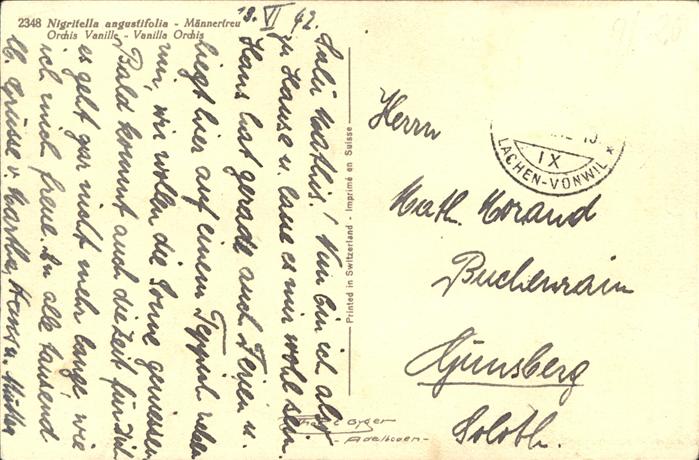 2348 Nigritella angustifolia - Männertreu
Orchis Vanille - Vanilla Orchis
13. VI 42.
Salü Mathis! Nun bin ich also
zu Hause u. lasse es mir wohl sein
Hans hat gerade auch Ferien u.
liegt hier auf einem Teppich neben
mir, wir wollen die Sonne geniessen.
Bald kommt auch die Zeit für Dich
es geht gar nicht mehr lange wie
ich mich freue. An alle tausend
lb. Grüsse v. Martha, Hans u. Mutter
Printed in Switzerland - Imprimé en Suisse
Gyger
- Adelboden -
IX
LACHEN-VONWIL
Herrn
Math. Morand
Buchenrain
Günsberg
Soloth.